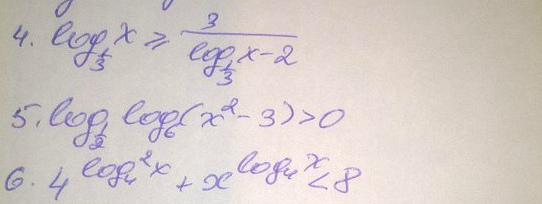 4. log_{1/3} x ≥ 3/(log_{1/3} x - 2)
5. log_{1/2} log_6 (x² - 3) > 0
6. 4^{log_4^2 x} + x^{log_4 x} < 8